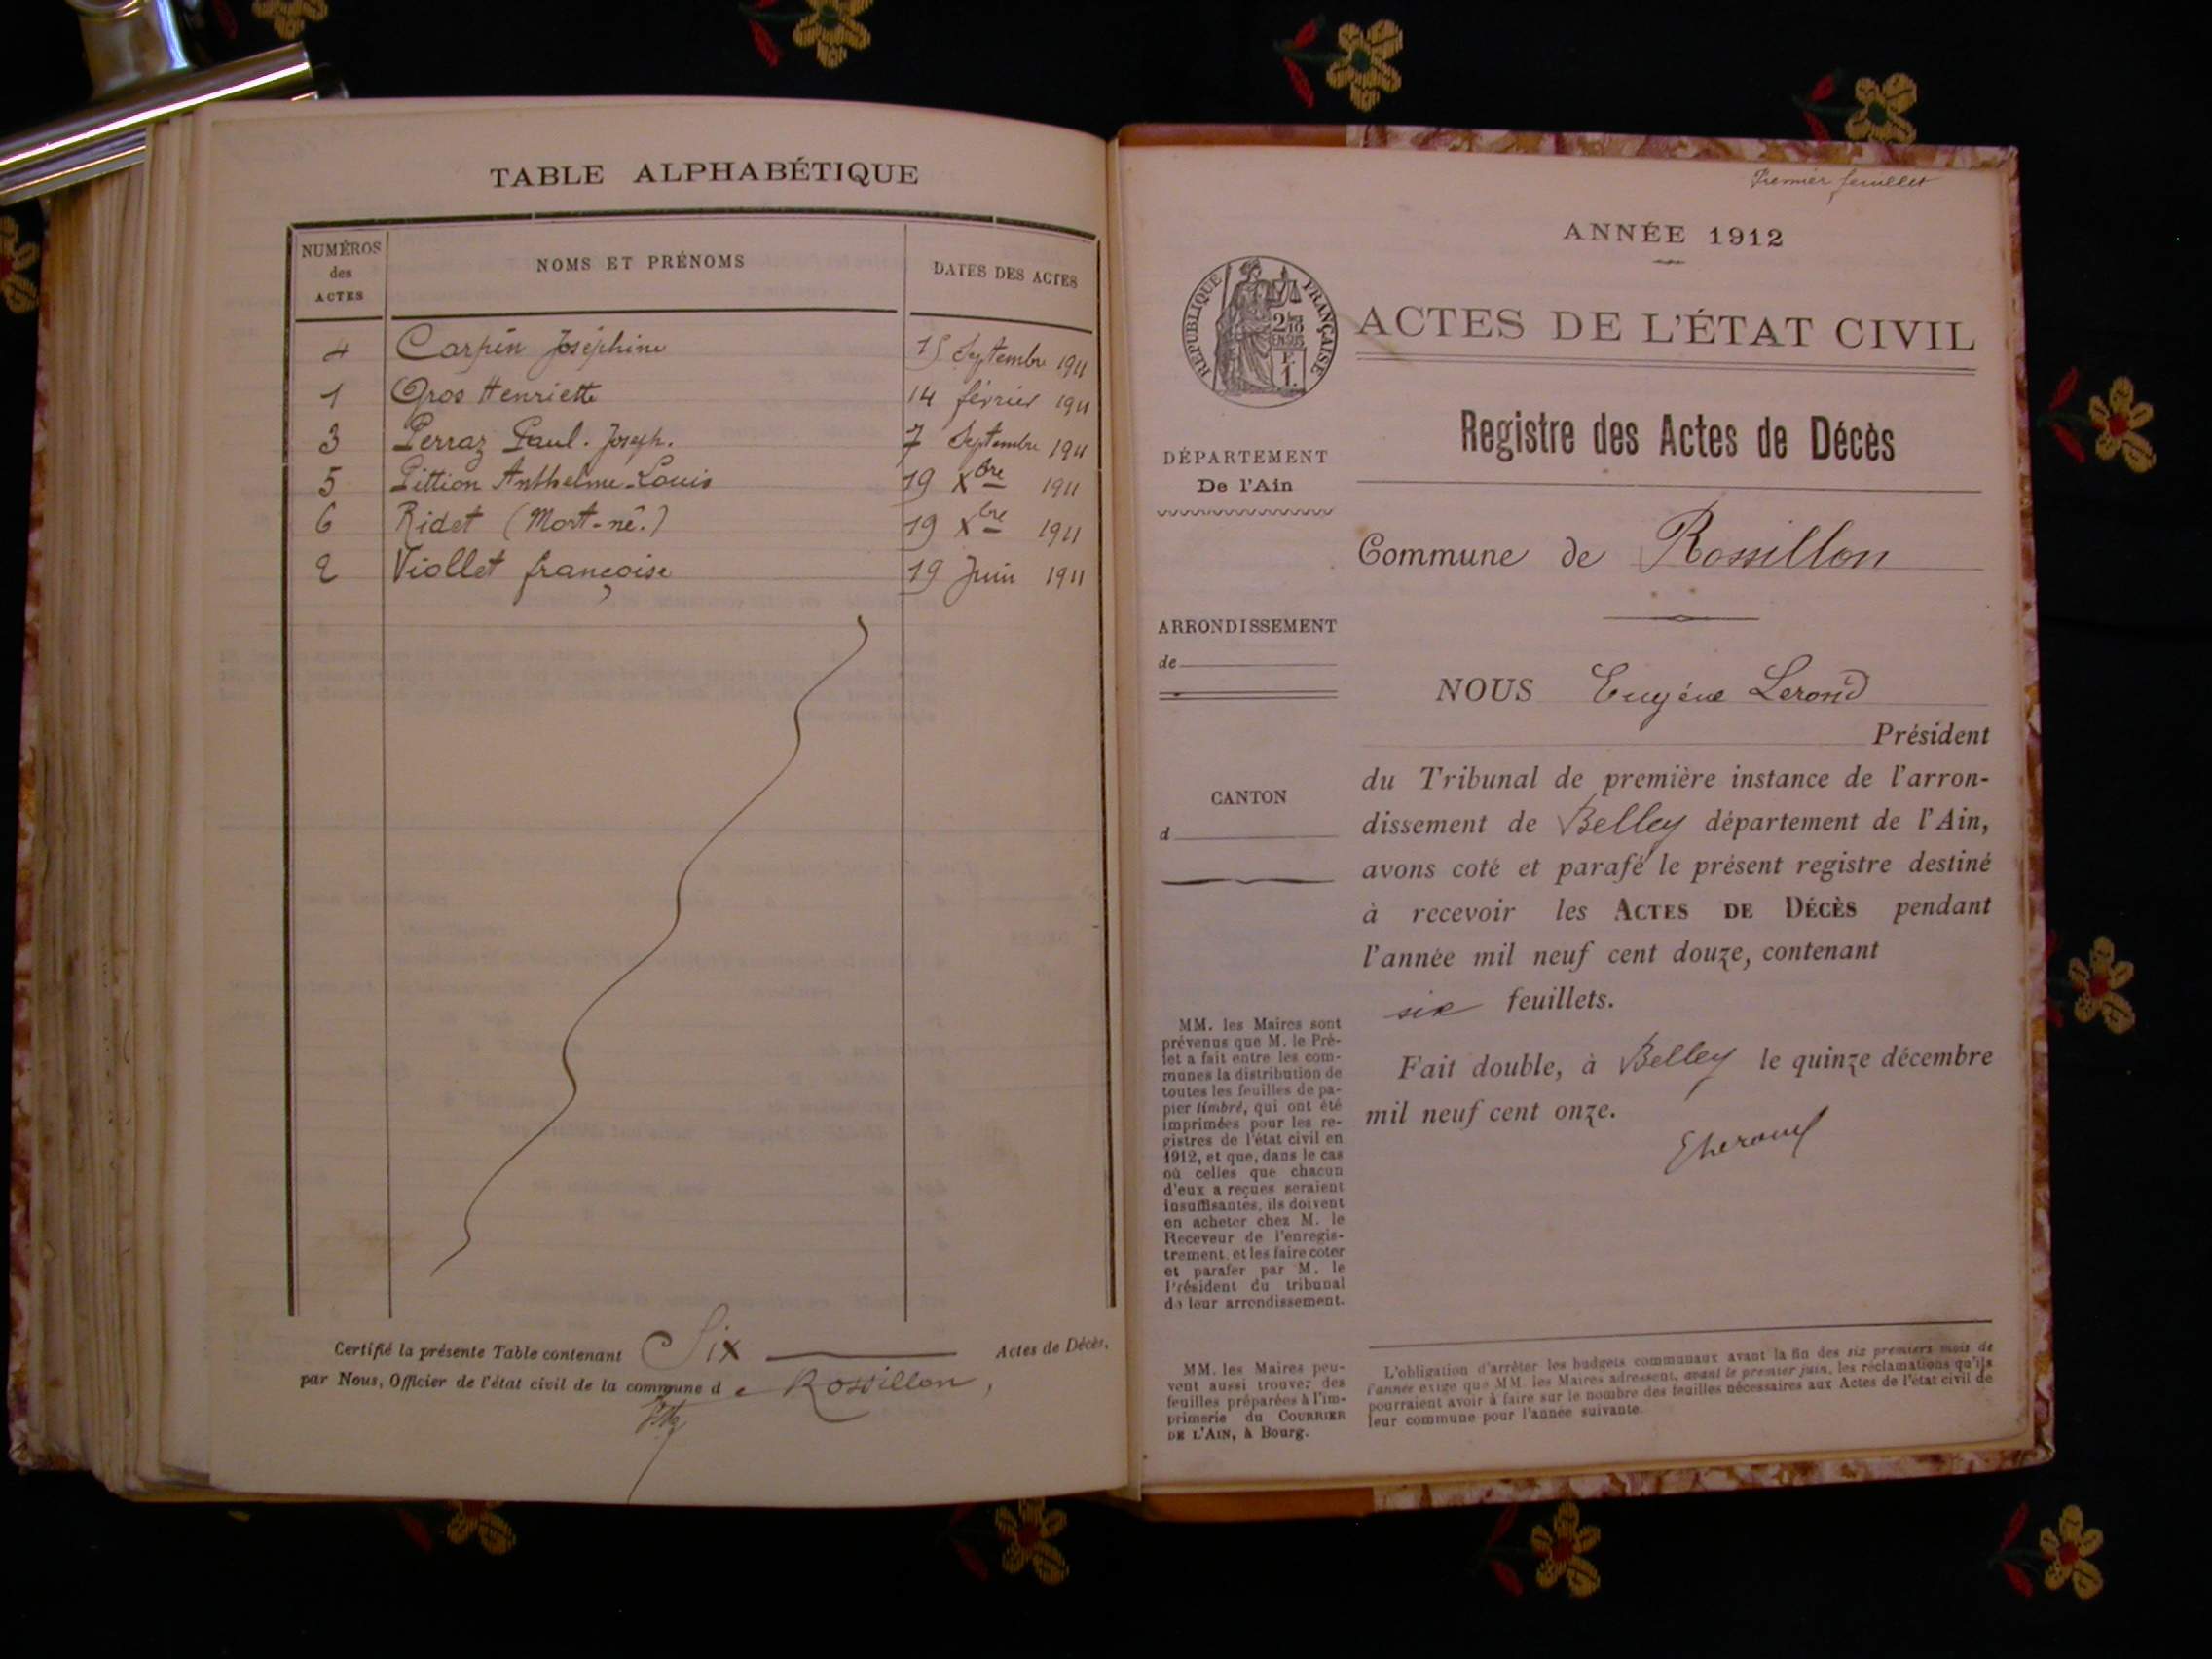 TABLE ALPHABÉTIQUE
NUMÉROS
des
ACTES
NOMS ET PRÉNOMS
DATES DES ACTES
4 Carpin Joséphine 15 Septembre 1911
1 Gros Henriette 14 février 1911
3 Perraz Paul. Joseph. 7 Septembre 1911
5 Pittion Anthelme Louis 19 Xbre 1911
6 Ridet (Mort-né.) 19 Xbre 1911
2 Viollet françoise 19 Juin 1911
Certifié la présente Table contenant Six Actes de Décès,
par Nous, Officier de l'état civil de la commune de Rossillon,
Premier feuillet
ANNÉE 1912
RÉPUBLIQUE FRANÇAISE
ACTES DE L'ÉTAT CIVIL
Registre des Actes de Décès
DÉPARTEMENT
De l'Ain
Commune de Rossillon
ARRONDISSEMENT
de
NOUS Eugène Lerond
Président
CANTON
d
du Tribunal de première instance de l'arron-
dissement de Belley département de l'Ain,
avons coté et parafé le présent registre destiné
à recevoir les ACTES DE DÉCÈS pendant
l'année mil neuf cent douze, contenant
six feuillets.
Fait double, à Belley le quinze décembre
mil neuf cent onze.
MM. les Maires sont
prévenus que M. le Pré-
fet a fait entre les com-
munes la distribution de
toutes les feuilles de pa-
pier timbré, qui ont été
imprimées pour les re-
gistres de l'état civil en
1912, et que, dans le cas
où celles que chacun
d'eux a reçues seraient
insuffisantes, ils doivent
en acheter chez M. le
Receveur de l'enregis-
trement, et les faire coter
et parafer par M. le
Président du tribunal
de leur arrondissement.
MM. les Maires peu-
vent aussi trouver des
feuilles préparées à l'im-
primerie du COURRIER
DE L'AIN, à Bourg.
L'obligation d'arrêter les budgets communaux avant la fin des six premiers mois de
l'année exige que MM. les Maires adressent, avant le premier juin, les réclamations qu'ils
pourraient avoir à faire sur le nombre des feuilles nécessaires aux Actes de l'état civil de
leur commune pour l'année suivante.